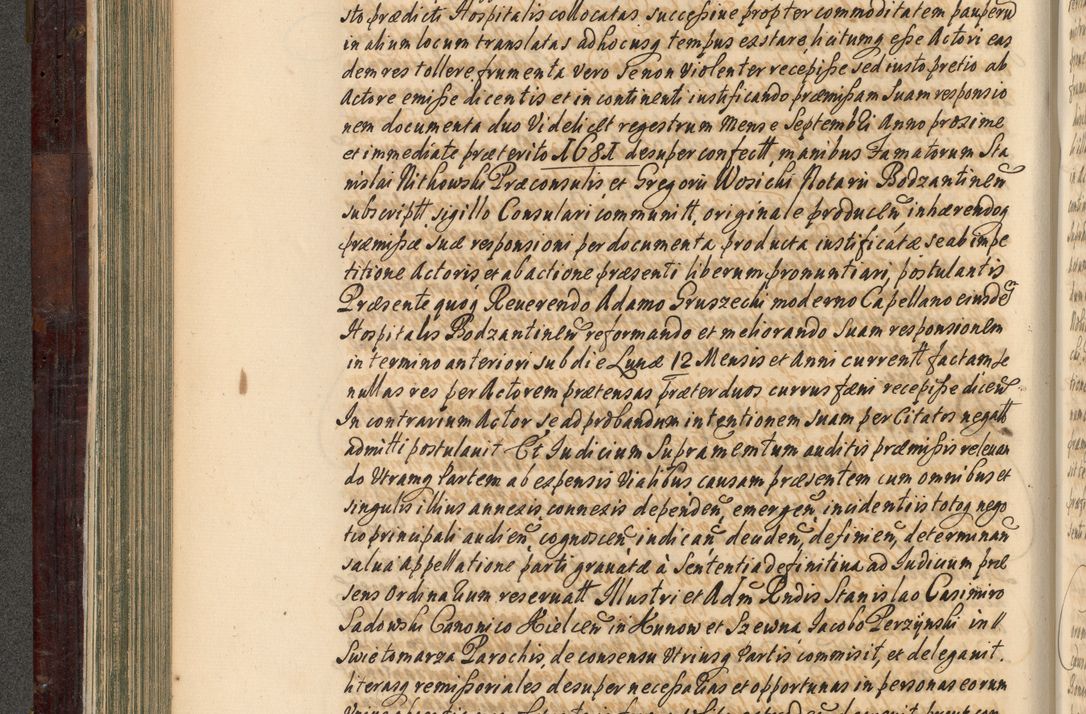 sto prædicti Hospitalis collocatas successive propter commoditatem pauperũ
in alium locum translatas ad hocusq tempus exstare, licitumq esse Actori eas
dem res tollere, frumenta vero se non violenter recepisse sed iusto pretio ab
Actore emisse dicentis et in continenti iustificando præmissam suam responsio
nem documenta duo videlicet regestrum Mense Septembri Anno proxime
et immediate præterito 1681 desuper confectt, manibus Famatorum Sta
nislai Nitkowski Præconsulis et Gregorii Wosicki Notarii Bodzantineñ
subscriptt sigillo Consulari communitt, originale produceñ inhærendoq
præmissæ suæ responsioni per documenta producta iustificatæ se ab impe
titione Actoris et ab actione præsenti liberum pronuntiari, postulantis
Præsente quoq Reuerendo Adamo Gruszecki moderno Capellano eiusdẽ
Hospitalis Bodzantineñ reformando et meliorando suam responsionem
in termino anteriori sub die Lunæ 12 Mensis et Anni currentt factam se
nullas res per Actorem prætensas præter duos currus fæni recepisse diceñ
In contrarium Actor se ad probandum intentionem suam per Citatos negatt
admitti postulauit Et Iudicium Supramemtum auditis præmissis releuan
do Utramq Partem ab expensis vialibus causam præsentem cum omnibus et
singulis illius annexis connexis dependeñ, emergeñ, incidentiis totoq nego
tio principali audieñ, cognosceñ, iudicañ, decideñ, definieñ, determinañ
salua appellatione parti grauatæ à sententia definitiua ad Iudicium præ
sens Ordinarium reseruatt Illustri et Adm̃ Rñdis Stanislao Casimiro
Sadowski Canonico Kielceñ in Kunow et Szewna Iacobo Perzynski in
Swietomarza Parochis, de consensu Utriusq Partis commisit, et delegauit.
literasq remissoriales desuper necessarias et opportunas in personas eorum